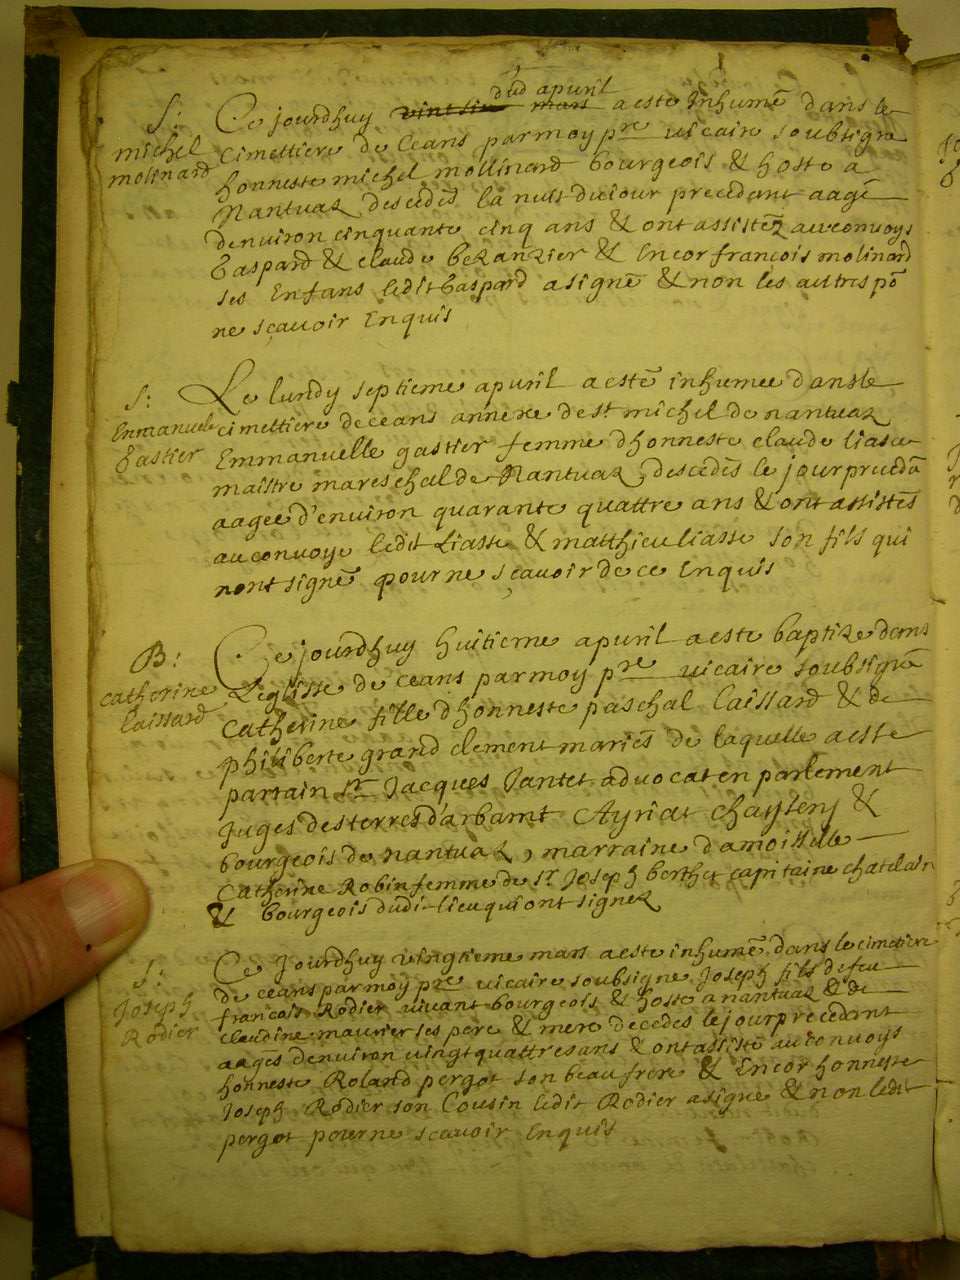 dud apvril
S: Ce jourdhuy vintsix mars a este Inhumé dans le
michel Cimettiere de Ceans par moy pre vicaire soubsigne
molinard honneste michel mollinard bourgeois & hoste a
Nantuaz descedes la nuit du iour precedant aagé
denviron cinquante cinq ans & ont assistéz au convoys
Gaspard & claude & Encor francois molinard
ses Enfans ledit Gaspard a signé & non les autres po
ne scavoir Enquis
S: Le lundy septieme apvril a esté inhumee dans le
Emanuele cimettiere de ceans annexe de st michel de nantuaz
gastier Emmanuelle gastier femme dhonneste claude liasse
maistre mareschal de Nantuaz descedés le jour precedã
aagee d'environ quarante quattre ans & ont assistés
au convoye ledit Liasse & matthieu liasse son fils qui
nont signé pour ne scavoir de ce Enquis
B: Ce jourdhuy huitieme apvril a este baptize dans
catherine Leglisse de ceans par moy pre vicaire soubsigné
Caissard Catherine fille dhonneste paschal Caissard & de
philiberte grand clement mariés de laquelle a este
parrain sr Jacques Jantet advocat en parlement
Juges des terres d'arbamt Ayriat &
bourgeois de nantuaz, marraine damoiselle
Catherine Robin femme de sr Joseph berthet capitaine chatelain
& bourgeois dudi lieu qui ont signez
S: Ce Jourdhuy vingtieme mars a este inhumé dans le cimetiere
Joseph de ceans par moy pre vicaire soubsigne Joseph fils de feu
Rodier francois Rodier vivant bourgeois & hoste a nantuaz & de
claudine maurier ses pere & mere decedes le jour precedant
aages denviron vingt quattres ans & ont assisté au convoys
honneste Roland pergot son beau frere & Encor honneste
Joseph Rodier son Cousin ledit Rodier a signe & non ledt
pergot pour ne scavoir Enquis